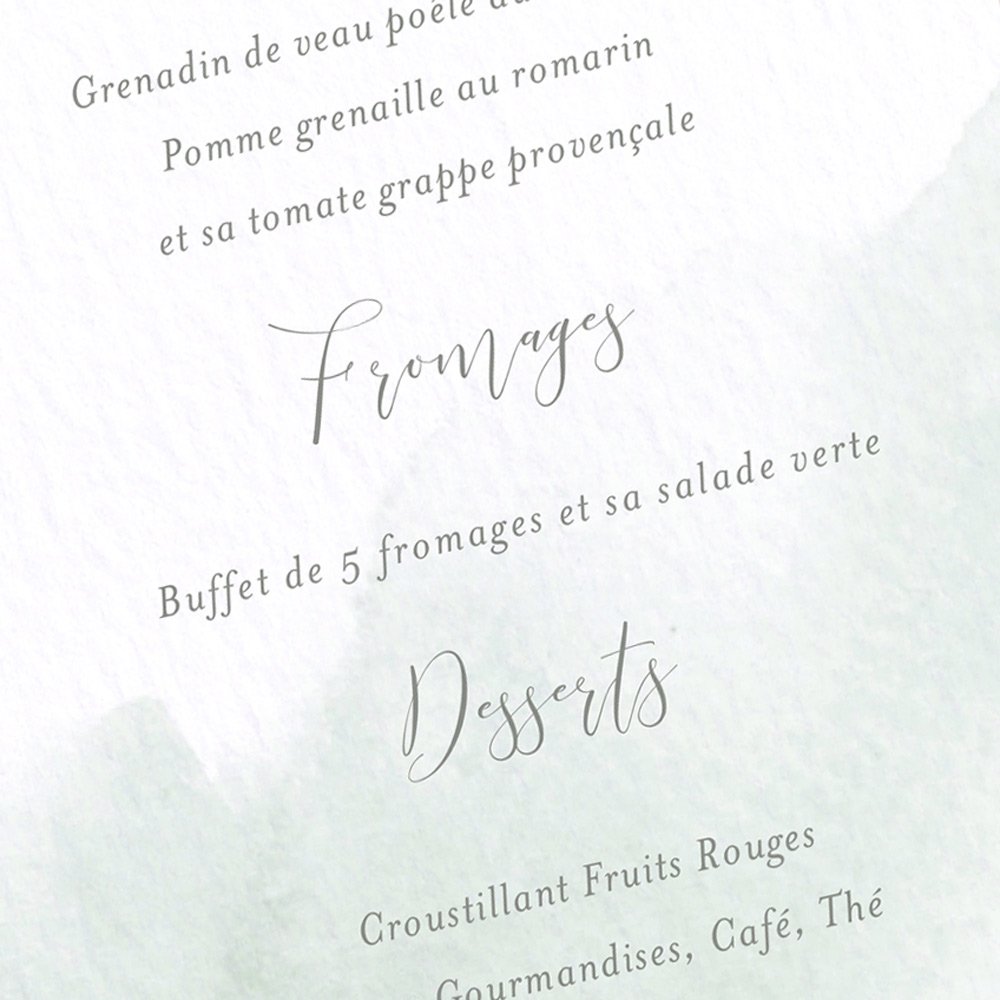 Grenadin de veau poêlé
Pomme grenaille au romarin
et sa tomate grappe provençale
Fromages
Buffet de 5 fromages et sa salade verte
Desserts
Croustillant Fruits Rouges
Gourmandises, Café, Thé